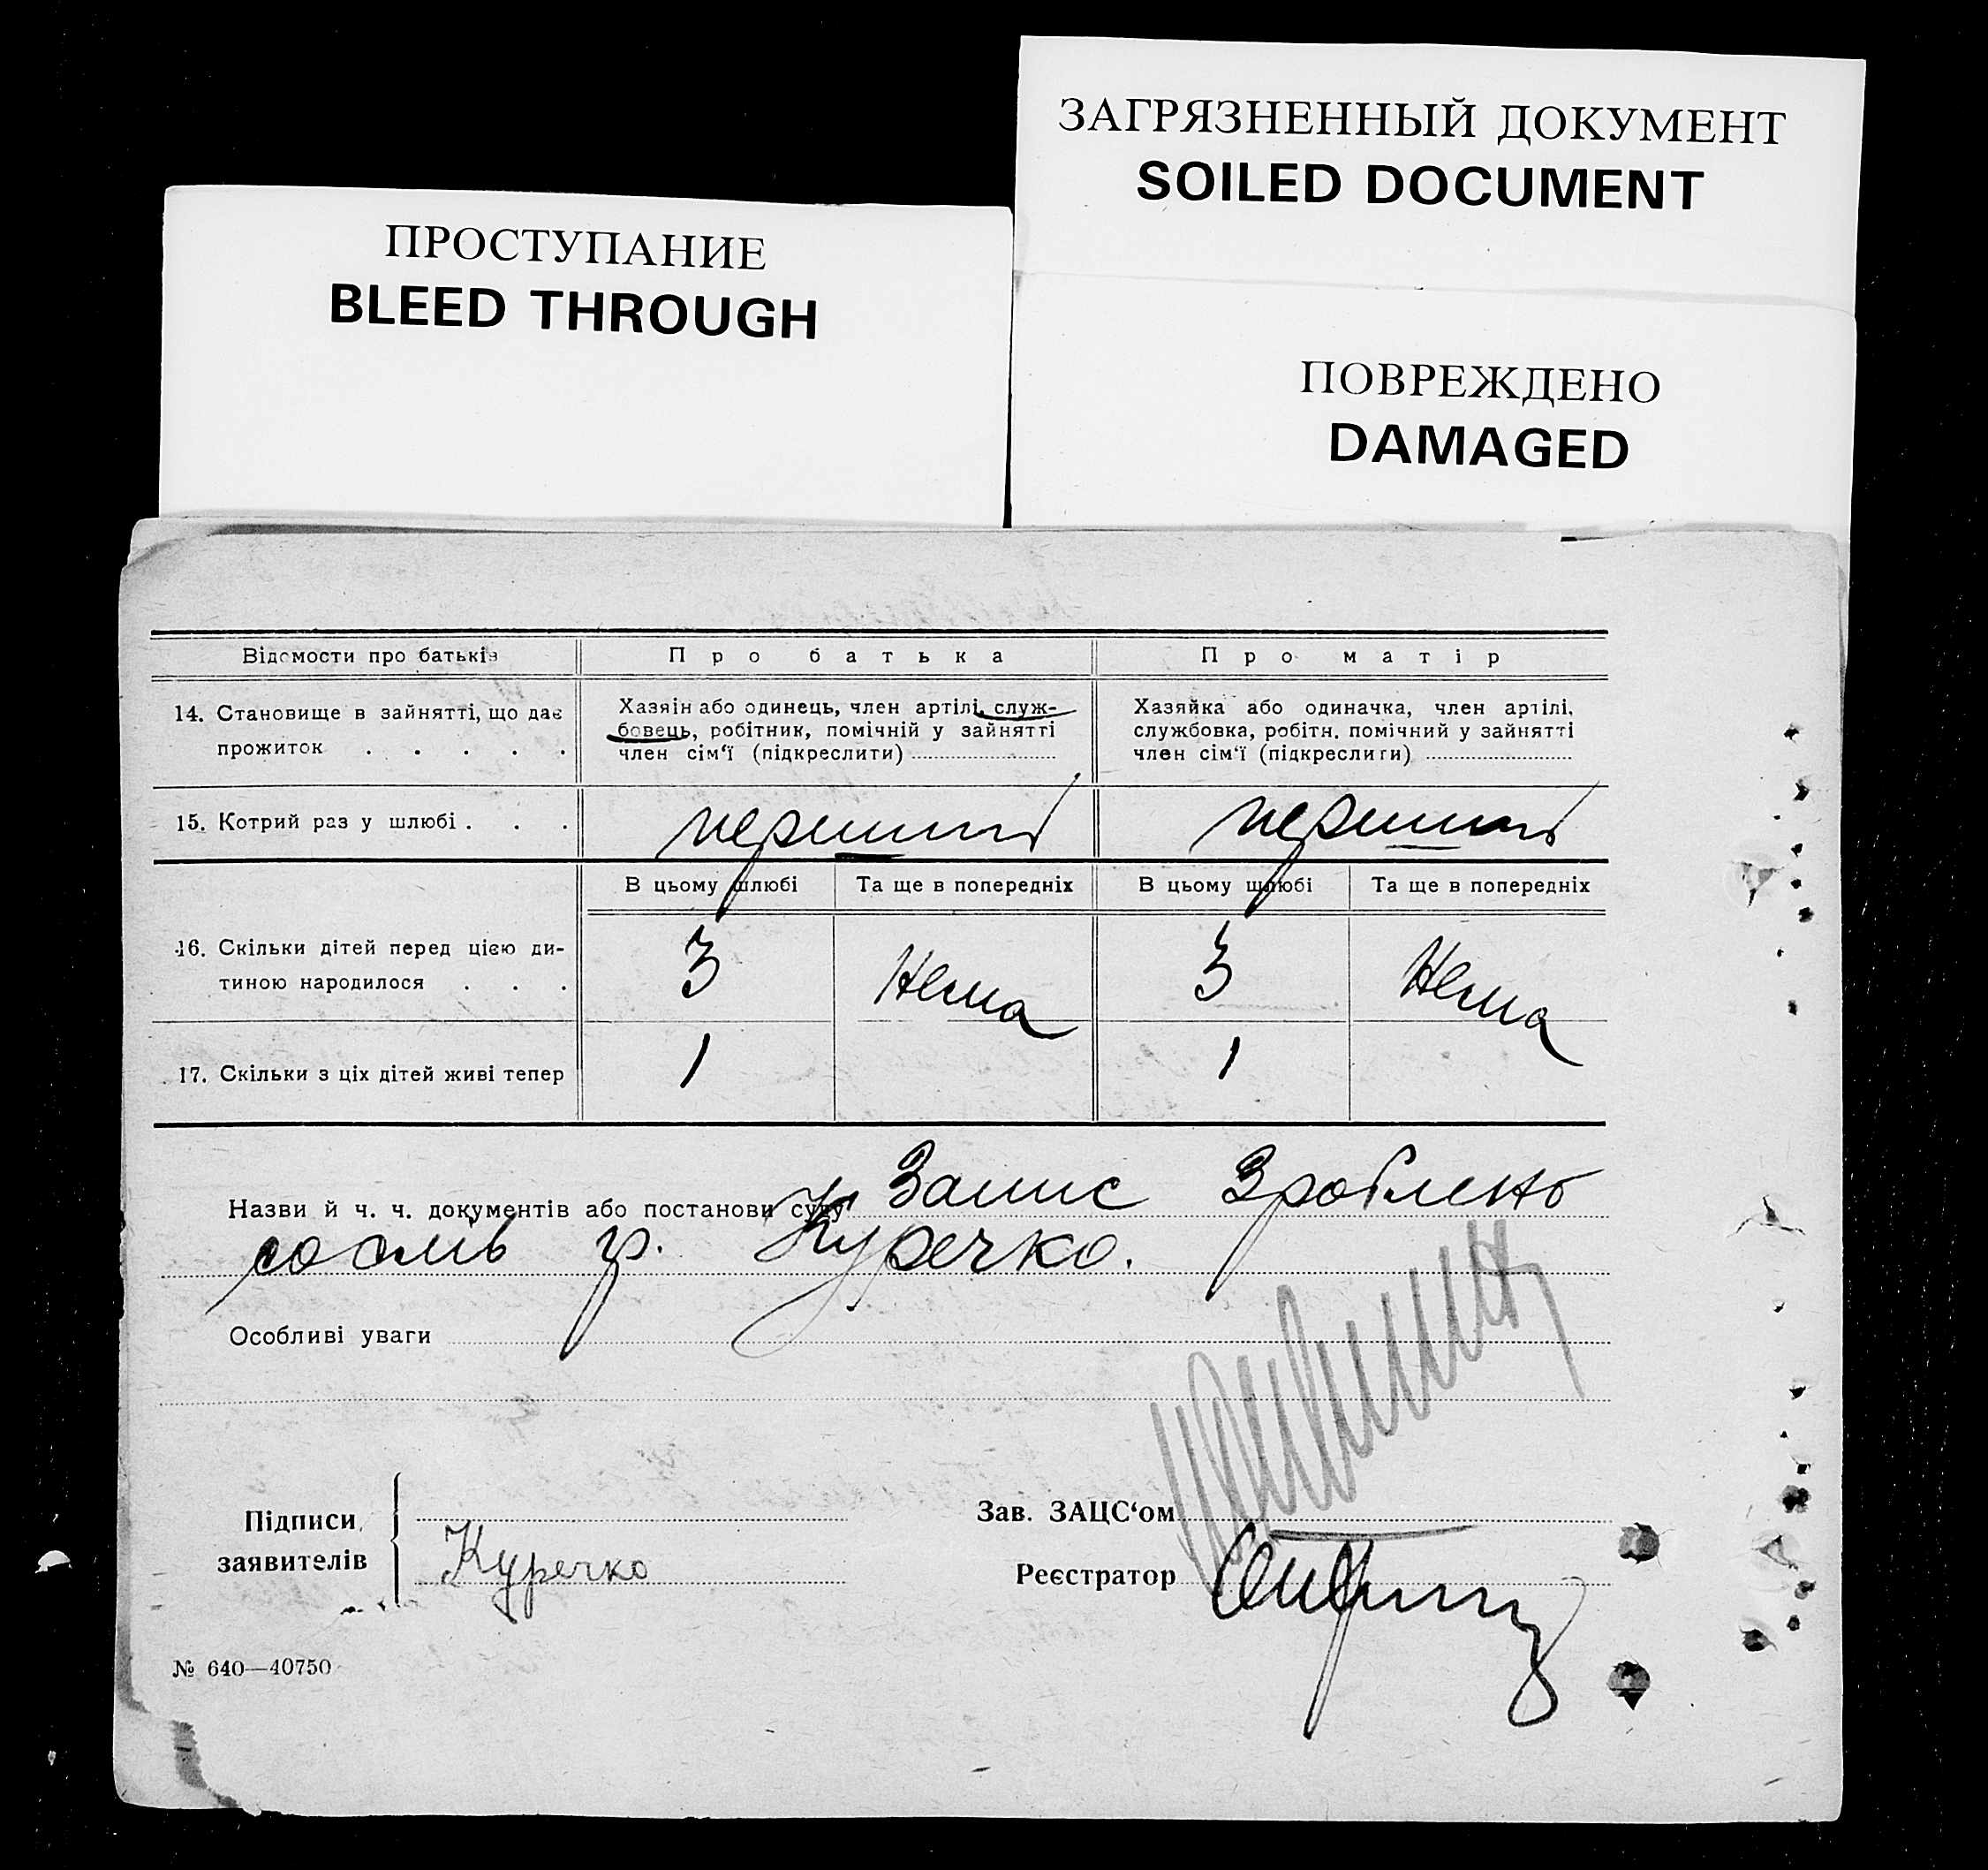 ЗАГРЯЗНЕННЫЙ ДОКУМЕНТ
SOILED DOCUMENT
ПРОСТУПАНИЕ
BLEED THROUGH
ПОВРЕЖДЕНО
DAMAGED
Відомости про батьків Про батька Про матір
14. Становище в зайнятті, що дає прожиток . . . . .
Хазяін або одинець, член артілі, служ-
бовець, робітник, помічній у зайнятті
член сім'ї (підкреслити)
Хазяйка або одиначка, член артілі,
службовка, робітн. помічний у зайнятті
член сім'ї (підкреслити)
15. Котрий раз у шлюбі . . . перший перший
В цьому шлюбі Та ще в попередніх В цьому шлюбі Та ще в попередніх
16. Скільки дітей перед цією ди-
тиною народилося . . . 3 Нема 3 Нема
17. Скільки з ціх дітей живі тепер 1 1
Назви й ч. ч. документів або постанови суду Запис Зроблено
гр. Куречко.
Особливі уваги
Підписи
заявителів
Куречко
Зав. ЗАЦС'ом
Реєстратор
№ 640—40750